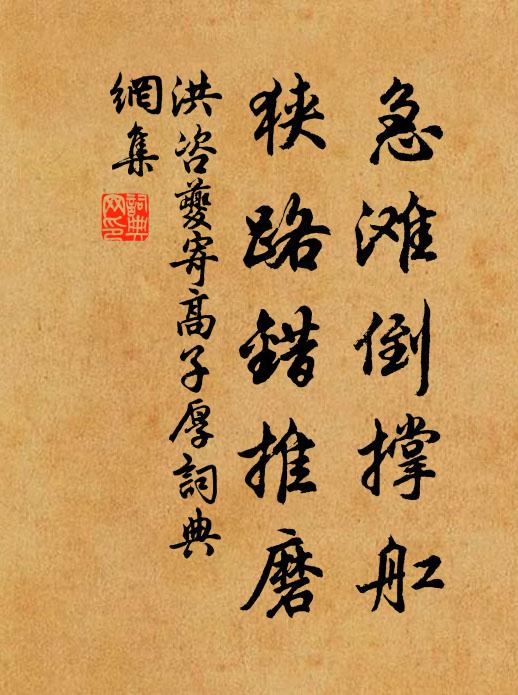 急滩倒撑舡
狭路错推磨
洪咨夔寄高子厚词典
网集
词典网印